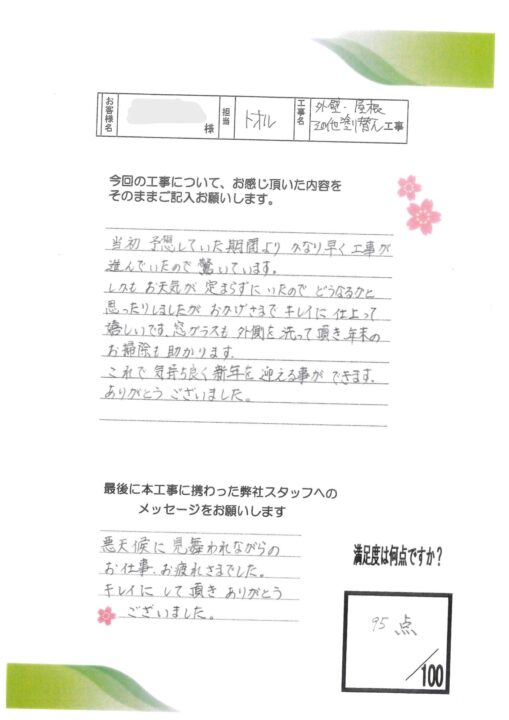 お客様名
様
担当
トオル
工事名
外壁・屋根
その他塗り替え工事
今回の工事について、お感じ頂いた内容を
そのままご記入お願いします。
当初 予想していた期間より かなり早く工事が
進んでいたので 驚いています。
しかも お天気が 定まらずにいたので どうなるかと
思ったりしましたが おかげさまで キレイに 仕上って
嬉しいです。窓ガラスも 外側を 洗って頂き 年末の
お掃除も 助かります。
これで 気持ち良く 新年を 迎える事が できます。
ありがとう ございました。
最後に本工事に携わった弊社スタッフへの
メッセージをお願いします
悪天候に 見舞われながらの
お仕事、お疲れさまでした。
キレイに して 頂き ありがとう
ございました。
満足度は何点ですか？
95点
/100